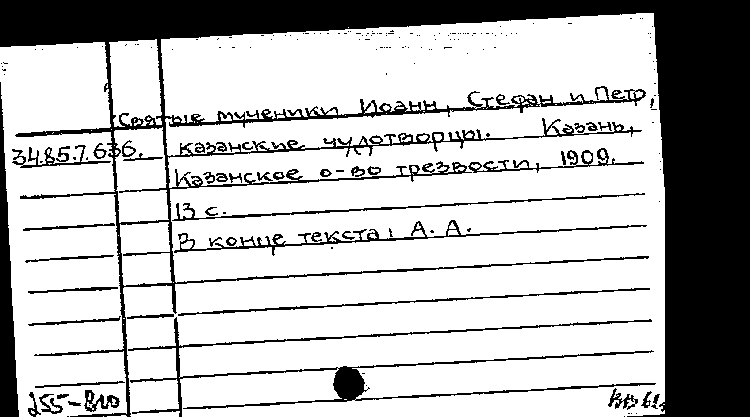 Святые мученики Иоанн, Стефан и Петр,
34.85.7.636. казанские чудотворцы. Казань,
Казанское о-во трезвости, 1909.
13 с.
В конце текста: А. А.
255-810